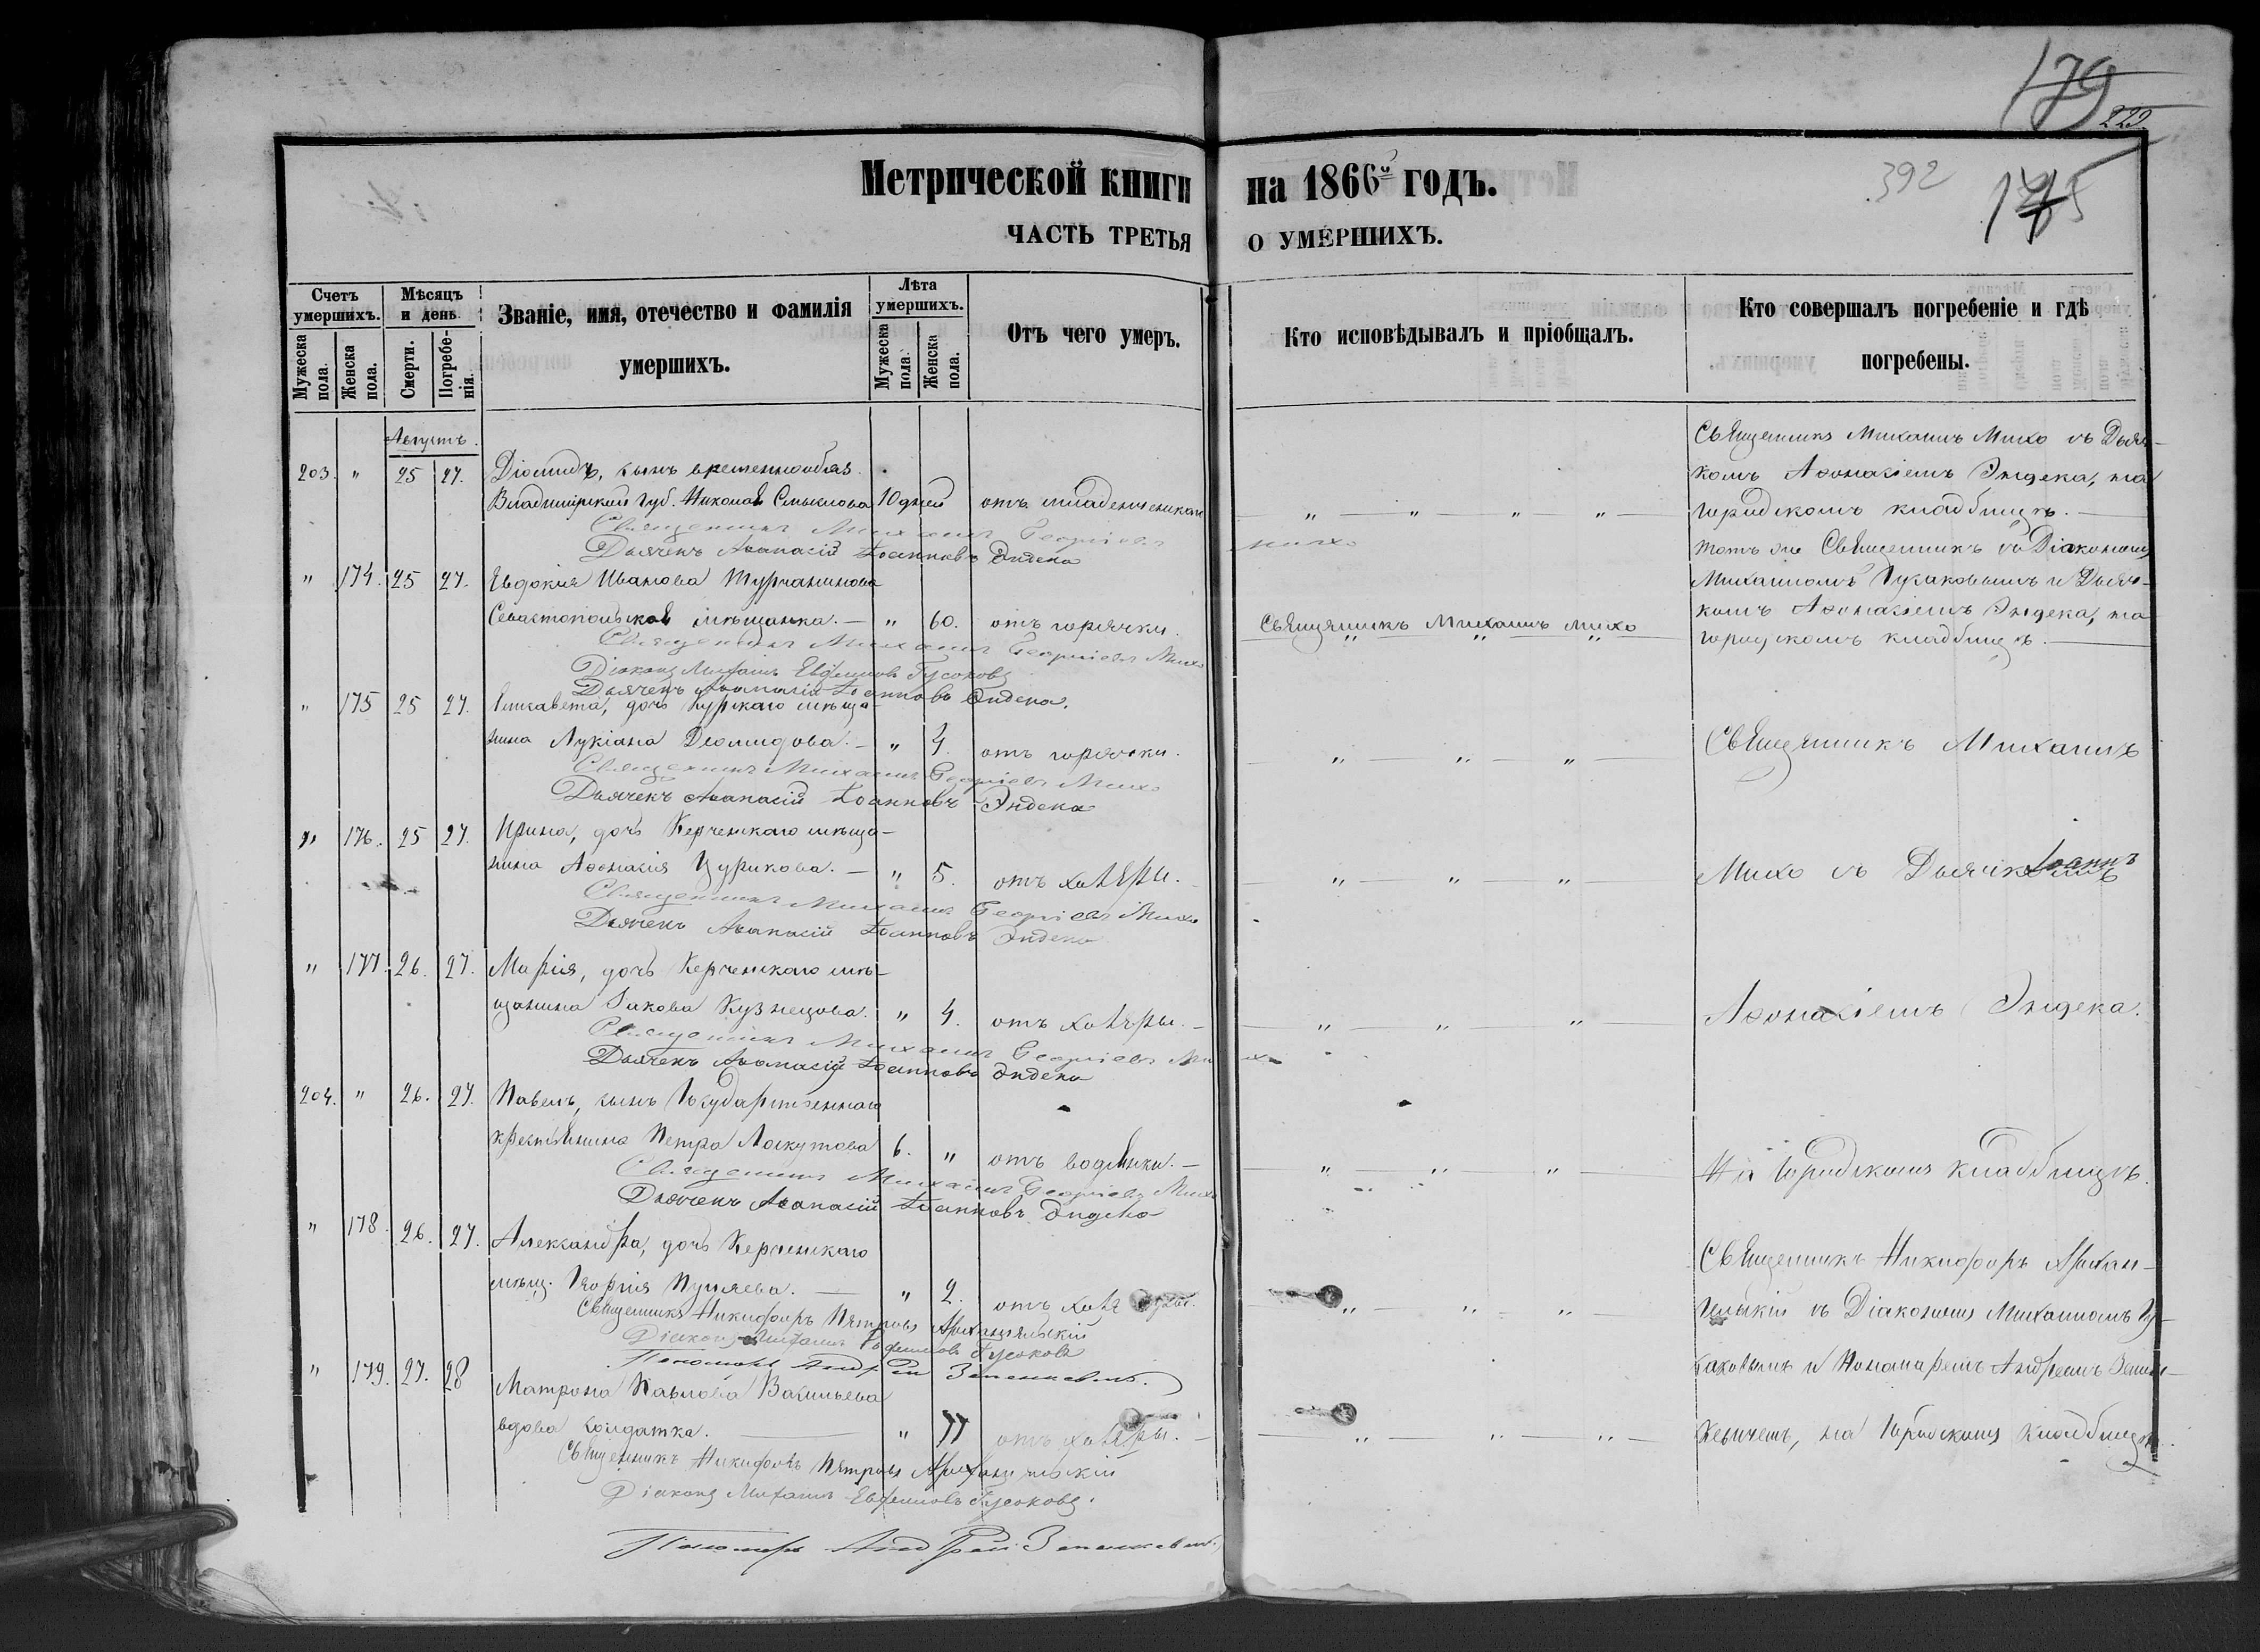 179
222
392
175
Метрической книги на 1866го годъ.
ЧАСТЬ ТРЕТЬЯ О УМЕРШИХЪ.
Счетъ умершихъ.
Мужеска пола.
Женска пола.
Мѣсяцъ и день
Смерти.
Погребенія.
Званіе, имя, отечество и фамилія умершихъ.
Лѣта умершихъ.
Мужеска пола.
Женска пола.
Отъ чего умеръ.
Кто исповѣдывалъ и пріобщалъ.
Кто совершалъ погребеніе и гдѣ погребены.
Августъ.
203. " 25 27. Діомидъ, сынъ временнообяз.
Владимірской губ. Николая Смыслова 10 дней отъ младенческой " " " "
Священникъ Михаилъ Георгіевъ Михо
Дьячекъ Аѳанасій Іоанновъ Эндека
Священникъ Михаилъ Михо съ Дьяч-
комъ Аѳонасіемъ Эндека, на
городскомъ кладбищѣ.
" 174. 25 27. Евдокія Иванова Турчанинова
Севастопольская мѣщанка. — " 60. отъ горячки. Священникъ Михаилъ Михо
Священникъ Михаилъ Георгіевъ Михо
Діаконъ Михаилъ Евфимовъ Гусаковъ
Дьячекъ Аѳанасій Іоанновъ Эндека.
тотъ же Священникъ съ Діакономъ
Михаиломъ Гусаковымъ и Дьяч-
комъ Аѳонасіемъ Эндека, на
городскомъ кладбищѣ.
" 175 25 27. Елисавета, дочь Курскаго мѣща-
нина Лукіана Деомидова. — " 4. отъ горячки. " " "
Священникъ Михаилъ Георгіевъ Михо
Дьячекъ Аѳанасій Іоанновъ Эндека
Священникъ Михаилъ
" 176. 25 27. Ирина, дочь Керченскаго мѣща-
нина Аѳонасія Цурикова. — " 5. отъ холеры. " " "
Священникъ Михаилъ Георгіевъ Михо
Дьячекъ Аѳанасій Іоанновъ Эндека
Михо съ Дьячкомъ
" 177. 26. 27. Марія, дочь Керченскаго мѣ-
щанина Іакова Кузнецова. " 4. отъ холеры. — " " "
Священникъ Михаилъ Георгіевъ Михо
Дьячекъ Аѳанасій Іоанновъ Эндека
Аѳонасіемъ Эндека.
204. " 26. 27. Павелъ, сынъ Государственнаго
крестьянина Петра Лоскутова 6. " отъ водянки. — " " "
Священникъ Михаилъ Георгіевъ Михо
Дьячекъ Аѳанасій Іоанновъ Эндека
На городскомъ кладбищѣ.
" 178. 26. 27. Александра, дочь Керченскаго
мѣщ. Георгія " 2. отъ холеры. " " "
Священникъ Никифоръ Петровъ Архангельскій
Діаконъ Михаилъ Евфимовъ Гусаковъ
Пономарь Андрей
Священникъ Никифоръ Архан-
гельскій съ Діакономъ Михаиломъ Гу-
саковымъ и Пономаремъ Андреемъ
кевичемъ, на городскомъ кладбищѣ.
" 179. 27. 28 Матрона Павлова Васильева
вдова солдатка. — " 77 отъ холеры. — " " "
Священникъ Никифоръ Петровъ Архангельскій
Діаконъ Михаилъ Евфимовъ Гусаковъ.
Пономарь Андрей